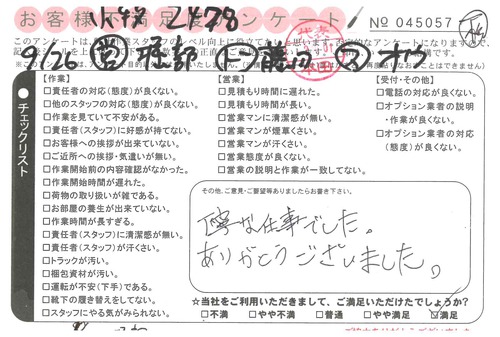 お客様 満足度アンケート!
№ 045057
2478
9/26
【作業】
□責任者の対応(態度)が良くない。
□他のスタッフの対応(態度)が良くない。
□作業を見ていて不安がある。
□責任者(スタッフ)に好感が持てない。
□お客様への挨拶が出来ていない。
□ご近所への挨拶・気遣いが無い。
□作業開始前の内容確認がなかった。
□作業開始時間が遅れた。
□荷物の取り扱いが雑である。
□お部屋の養生が出来ていない。
□作業時間が長すぎる。
□責任者(スタッフ)に清潔感が無い。
□責任者(スタッフ)が汗くさい。
□トラックが汚い。
□梱包資材が汚い。
□運転が不安(下手)である。
□靴下の履き替えをしてない。
□スタッフにやる気がみられない。
●チェックリスト
【営業】
□見積もり時間に遅れた。
□見積もり時間が長い。
□営業マンに清潔感が無い。
□営業マンが煙草くさい。
□営業マンが汗くさい。
□営業態度が良くない。
□営業の説明と作業が一致してない。
【受付・その他】
□電話の対応が良くない。
□オプション業者の説明・作業が良くない。
□オプション業者の対応(態度)が良くない。
その他、ご意見・ご要望等ありましたらお書き下さい。
丁寧な仕事でした。
ありがとうございました。
☆当社をご利用いただきまして、ご満足いただけたでしょうか?
□不満 □やや不満 □普通 □やや満足 □満足